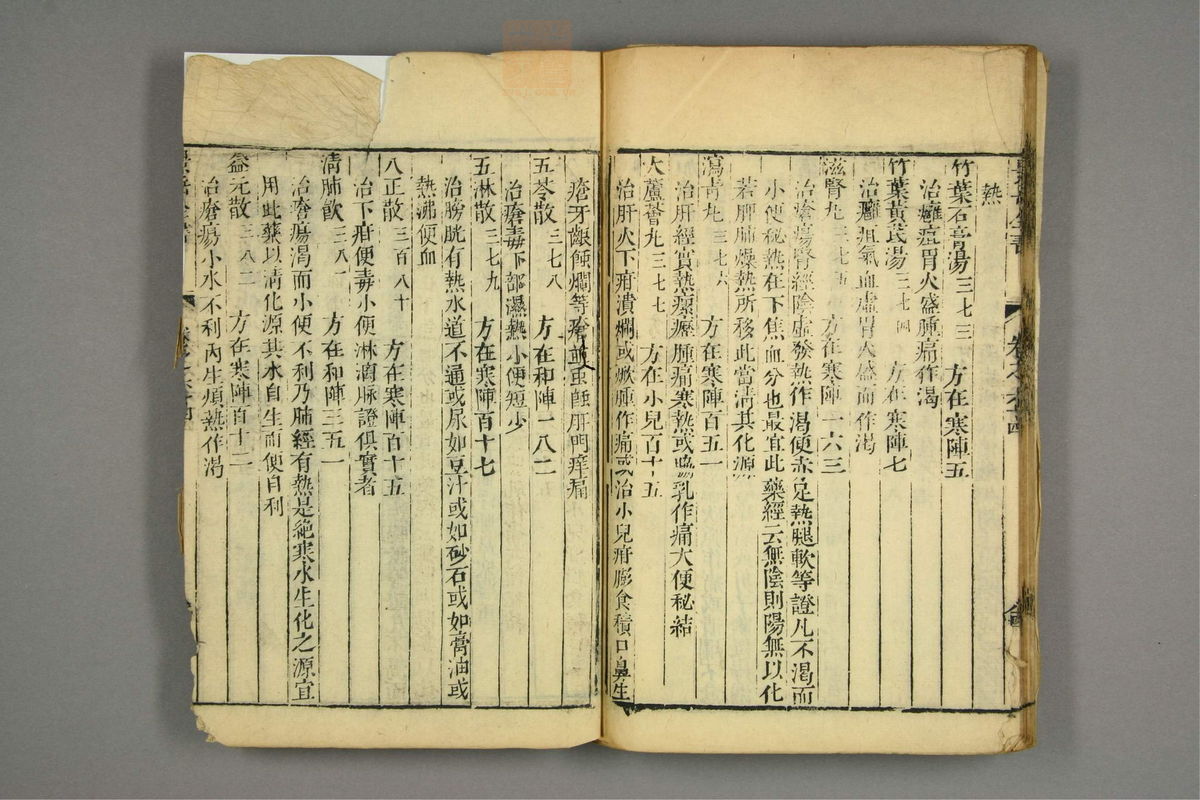 熱
竹葉石膏湯三七三 方在寒陣五
治癰疽胃火盛腫痛作渴
竹葉黃芪湯三七四 方在寒陣七
治癰疽氣血虛胃火盛而作渴
滋腎丸三七五 方在寒陣一六三
治瘡瘍腎經陰虛發熱作渴便赤足熱腿軟等證凡不渴而
小便秘熱在下焦血分也最宜此藥經云無陰則陽無以化
若脾肺燥熱所移此當清其化源
瀉青丸三七六 方在寒陣百五一
治肝經實熱瘰癧腫痛寒熱或脇乳作痛大便秘結
大蘆薈丸三七七 方在小兒百十五
治肝火下疳潰爛或焮腫作痛或治小兒疳膨食積口鼻生
瘡牙齦蝕爛等瘡並虫蝕肛門痒痛
五苓散三七八 方在和陣一八二
治瘡毒下部濕熱小便短少
五淋散三七九 方在寒陣百十七
治膀胱有熱水道不通或尿如豆汁或如砂石或如膏油或
熱沸便血
八正散三百八十 方在寒陣百十五
治下疳便毒小便淋瀝脉證俱實者
清肺飲三八一 方在和陣三五一
治瘡瘍渴而小便不利乃肺經有熱是絶寒水生化之源宜
用此藥以清化源其水自生而便自利
益元散三八二 方在寒陣百十二
治瘡瘍小水不利內生煩熱作渴